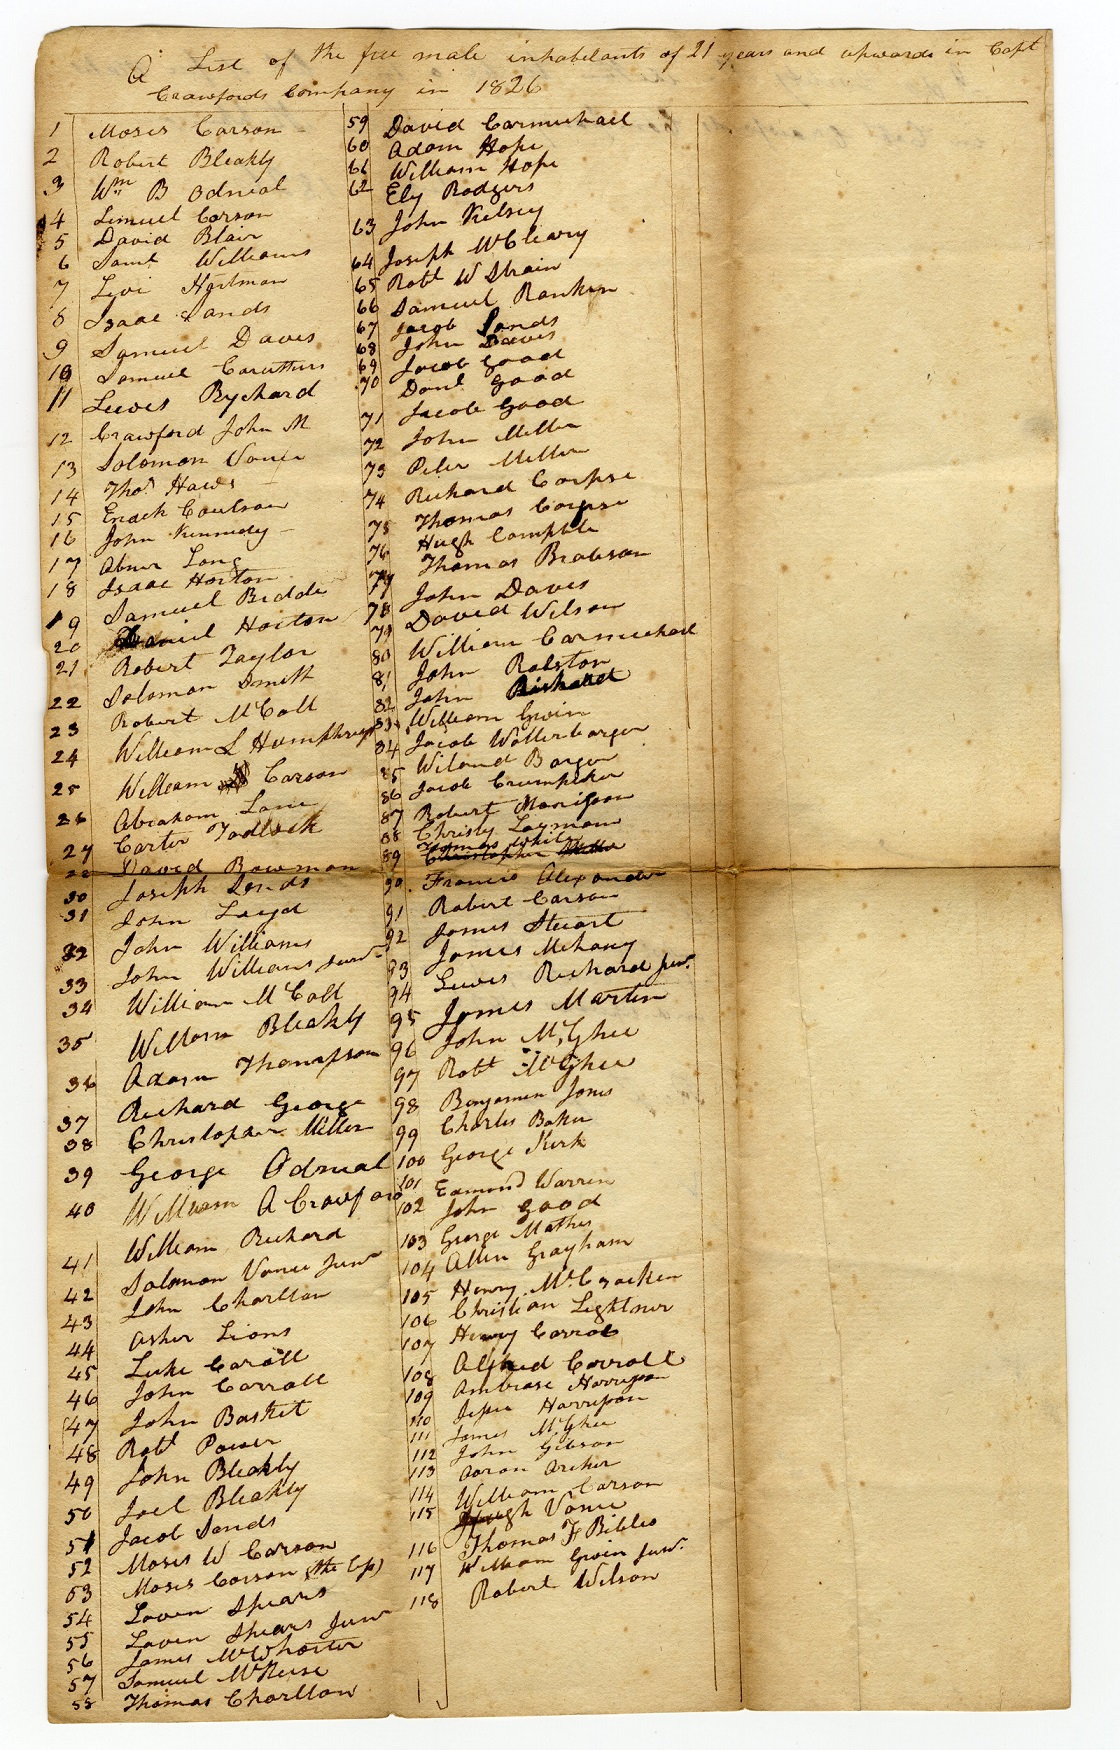 A List of the free male inhabitants of 21 years and upwards in Capt
Crawfords Company in 1826
1 Moses Carson
2 Robert Bleakly
3 Wm B Odneal
4 Lemuel Carson
5 David Blair
6 Saml Williams
7 Levi Hartman
8 Isaac Sands
9 Samuel Davis
10 Samuel Caruthers
11 Lewis Rychard
12 Crawford John M
13 Solomon Vance
14 Thos Haws
15 Enoch Coulson
16 John Kennedy
17 Abner Long
18 Isaac Horton
19 Samuel Biddle
20 Daniel Horton
21 Robert Taylor
22 Solomon Smith
23 Robert McCall
24 William L Humphreys
25 William Carson
26 Abraham Lane
27 Carter Tadlock
David Bowman
30 Joseph Sands
31 John Loyd
32 John Williams
33 John Williams Junr
34 William McCall
35 William Bleakly
36 Adam Thompson
37 Richard George
38 Christopher Miller
39 George Odneal
40 William A Crawford
41 William Richard
42 Solomon Vance Junr
43 John Charlton
44 Asher Lions
45 Luke Caroll
46 John Carroll
47 John Basket
48 Robt Power
49 John Bleakly
50 Joel Bleakly
51 Jacob Sands
52 Moses W Carson
53 Moses Carson (the Cp)
54 Laven Spears
55 Laven Spears Junr
56 James McWhorter
57 Samuel McReese
58 Thomas Charlton
59 David Carmichael
60 Adam Hope
61 William Hope
62 Ely Rodgers
63 John Kelsey
64 Joseph McCleary
65 Robt W Strain
66 Samuel Rankin
67 Jacob Sands
68 John Davis
69 Jacob Good
70 Danl Good
71 Jacob Good
72 John Miller
73 Peter Miller
74 Richard Corpse
75 Thomas Corpse
76 Hugh Campble
77 Thomas Brabson
78 John Davis
79 David Wilson
80 William Carmichael
81 John Ralston
82 John Richard
83 William Gwin
84 Jacob Wolterbarger
85 Wiland Barger
86 Jacob Crumpecker
87 Robert Morison
88 Christy Laymon
89 Thomas White
90 Francis Alexander
91 Robert Carson
92 James Stuart
James Mehany
93 Lewis Richard Junr
94
95 James Martin
96 John McGhee
97 Robt McGhee
98 Benjamin Jones
99 Charles Baker
100 George Kirk
101 Edmond Warren
102 John Good
103 George Mathis
104 Allen Grayham
105 Henry McCracken
106 Christian Lightner
107 Henry Carrol
108 Alfred Carroll
109 Ambrose Harrison
110 Jesse Harrison
111 James McGhee
112 John Gibson
113 Aaron Archer
114 William Carson
115 Hugh Vance
116 Thomas F Bibles
117 William Gwin Junr
118 Robert Wilson